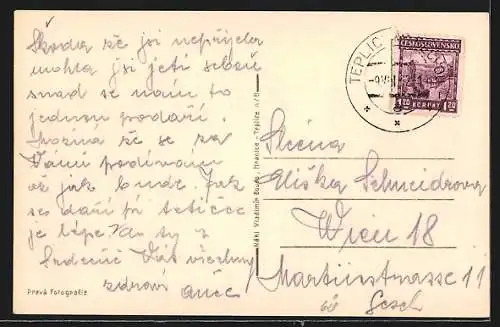 Škoda že jsi nepřijela
mohla jsi jeti sebou
snad se nám to
jednou podaří.
Možná že se za
Vámi podívám
až jak bude. Jak
se daří při tetičce
je lépe?
Srdečně Vás všechny
zdraví Anče
Pravá Fotografie
Nákl. Vladimír Bouda, Hranice - Teplice n/B.
TEPLICE
ČESKOSLOVENSKO
1.20 KORUNY 1.20
Slečna
Eliška Schneidrova
Wien 18
Martinstrasse 11